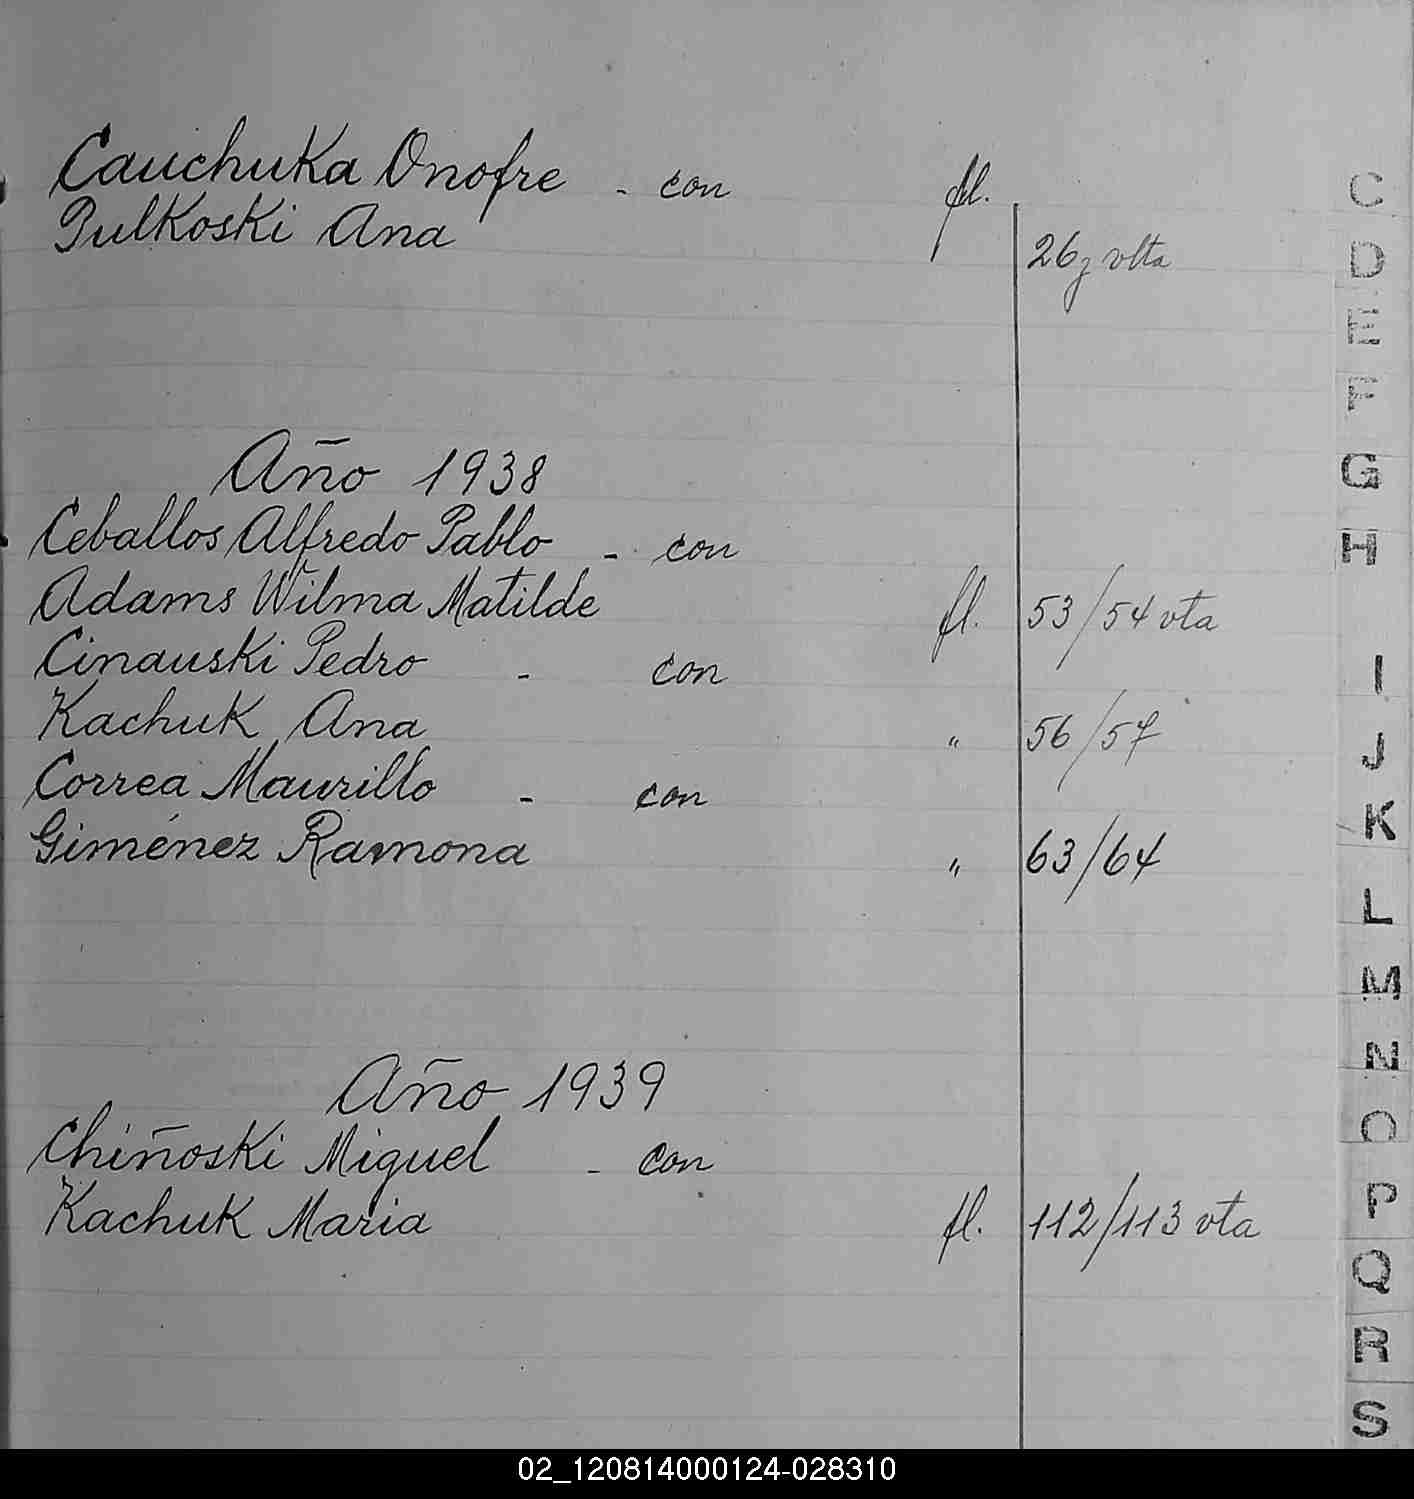 Cauchuka Onofre - con fl.
Pulkoski Ana 26 y vlta
Año 1938
Ceballos Alfredo Pablo - con
Adams Wilma Matilde fl. 53/54 vta
Cinauski Pedro - con
Kachuk Ana " 56/57
Correa Maurillo - con
Giménez Ramona " 63/64
Año 1939
Chiñoski Miguel - con
Kachuk Maria fl. 112/113 vta
C
D
E
F
G
H
I
J
K
L
M
N
O
P
Q
R
S
02_120814000124-028310